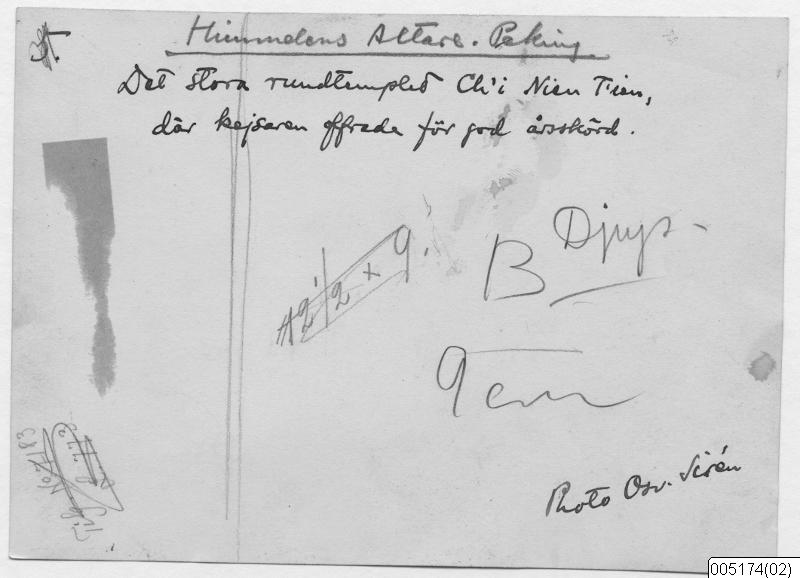 Himmelens Altare. Peking.
Det stora rundtemplet Ch'i Nien Tien,
där kejsaren offrade för god årsskörd.
12 1/2 x 9.
B Djups-
9 cm
Photo Osv. Sirén
Fig. No 7183
005174(02)